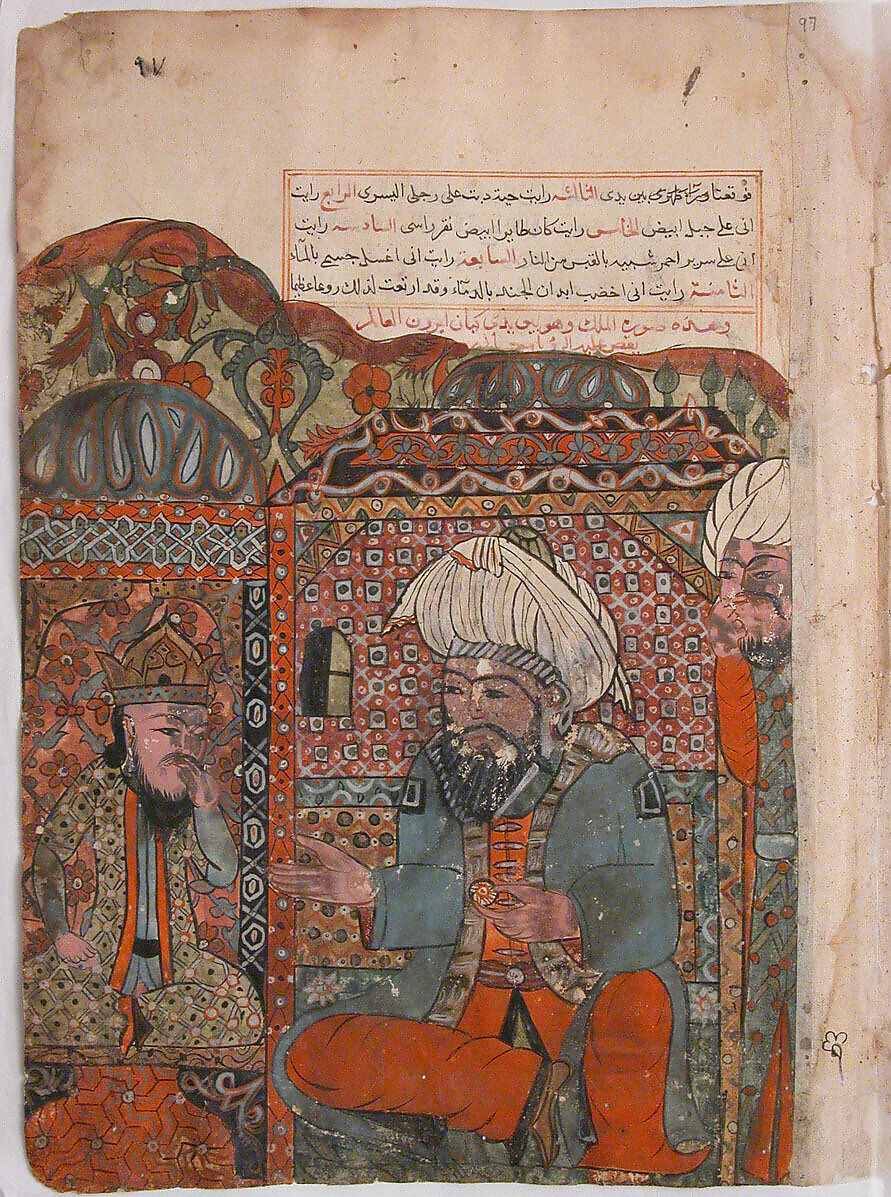 97
٩٧
بين يدي الثالثه رايت حية دبت على رجلي اليسرى الرابع رايت
اني على جبل ابيض الخامس رايت كان طايرا ابيض نقر راسي السادسه رايت
اني على سرير احمر شبيه بالقبس من النار السابعة رايت اني اغسل جسمي بالمآء
الثامنة رايت اني اخضب ابدان الجند بالدمآء وقد ارتعت لذلك روعا عظيما
وهذه صورة الملك وهو بين يدي كبان ايرون العالم